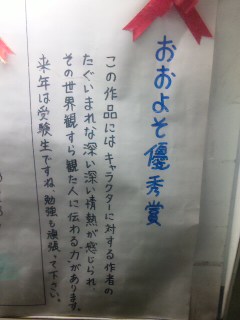 おおよそ優秀賞
この作品にはキャラクターに対する作者の
たぐいまれな深い深い情熱が感じられ、
その世界観すら観た人に伝わる“力”があります。
来年は受験生ですね。勉強も頑張って下さい。